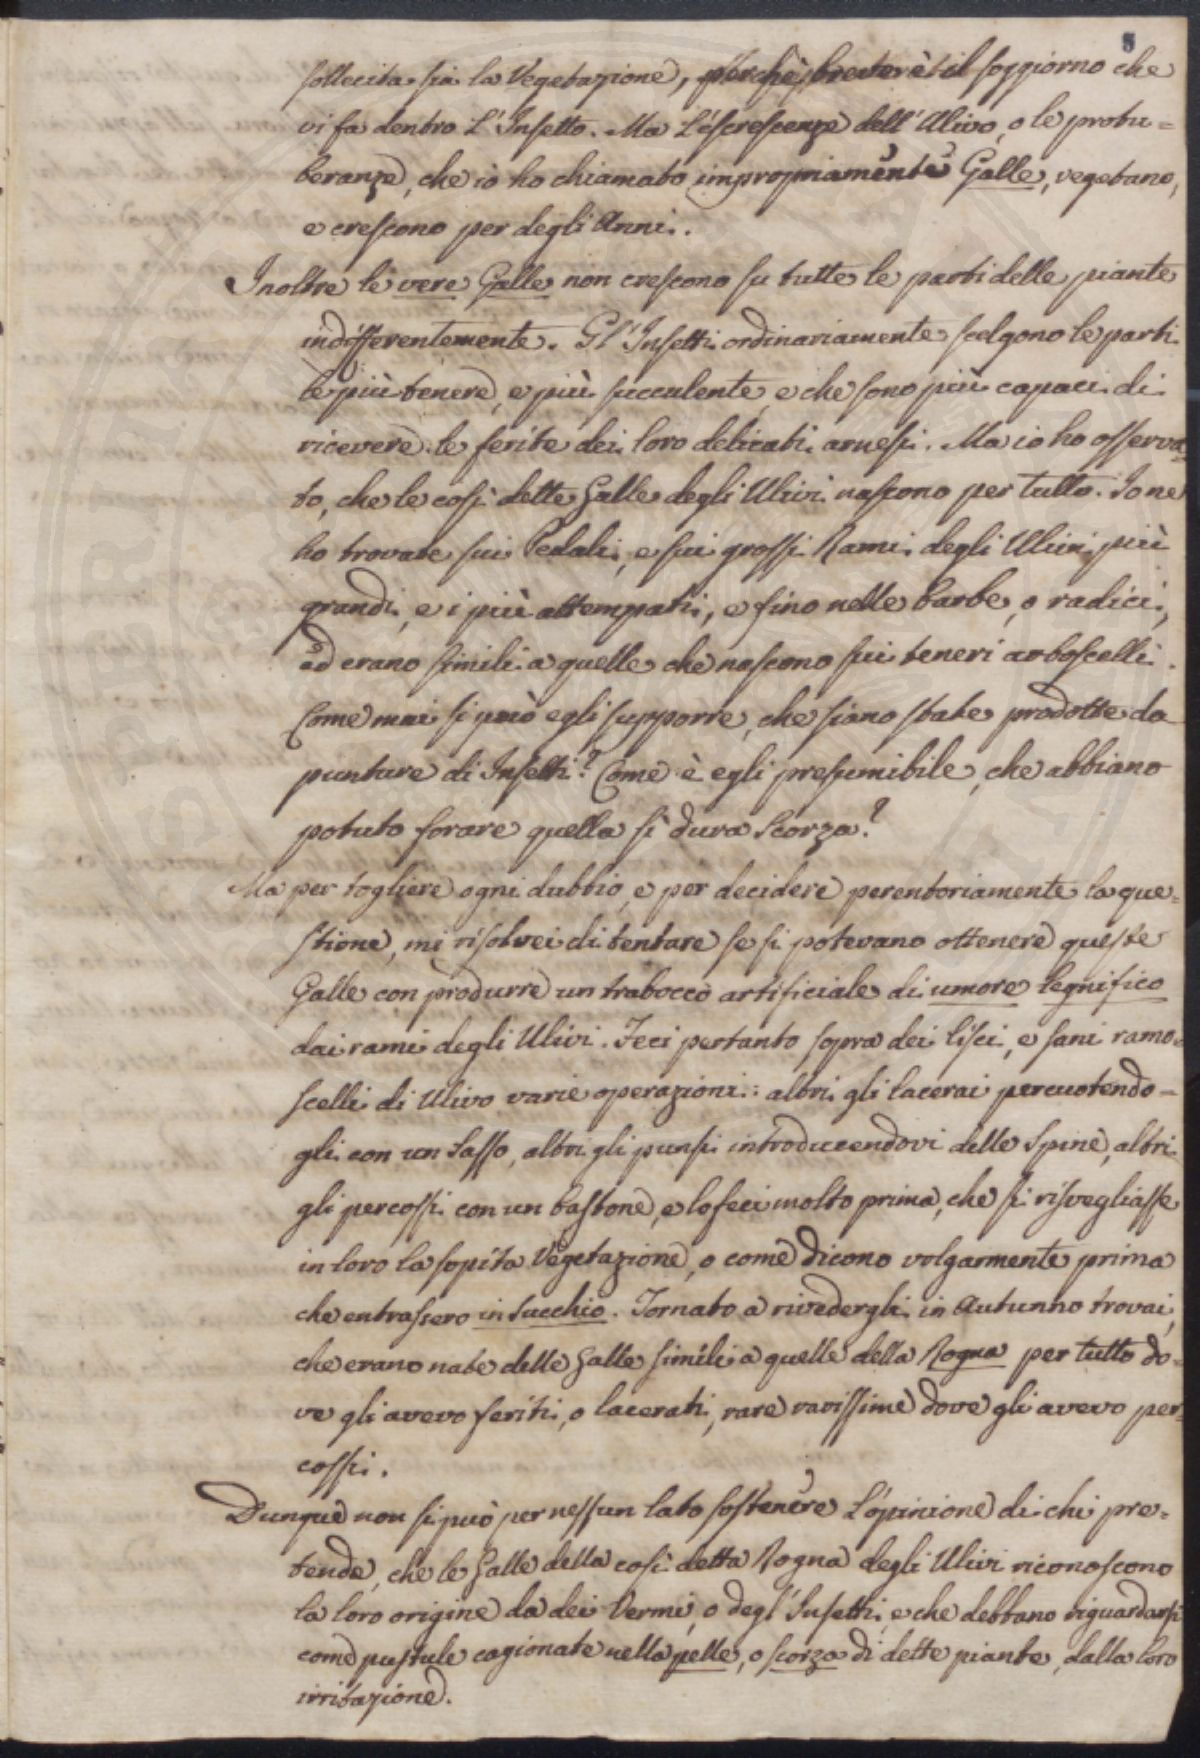 8
sollecita sia la Vegetazione, perchè breve è il soggiorno che
vi fa dentro L'Insetto. Ma L'escrescenze dell'Ulivo, o le protu=
beranze, che io ho chiamato impropriamente Galle, vegetano,
e crescono per degli Anni.
Inoltre le vere Galle non crescono su tutte le parti delle piante
indifferentemente. Gl'Insetti ordinariamente scelgono le parti
le più tenere, e più succulente, e che sono più capaci di
ricevere le ferite dei loro delicati arnesi. Ma io ho osserva=
to, che le così dette Galle degli Ulivi nascono per tutto. Io ne
ho trovate sui Pedali, e sui grossi Rami degli Ulivi più
grandi, e i più attempati, e fino nelle barbe, o radici,
ed erano simili a quelle che nascono sui teneri arboscelli.
Come mai si può egli supporre, che siano state prodotte da
punture di Insetti? Come è egli presumibile, che abbiano
potuto forare quella sì dura Scorza?
Ma per togliere ogni dubbio, e per decidere perentoriamente la que=
stione, mi risolvei di tentare se si potevano ottenere queste
Galle con produrre un trabocco artificiale di umore legnifico
dai rami degli Ulivi. Feci pertanto sopra dei lisci, e sani ramo=
scelli di Ulivo varie operazioni: altri gli lacerai percuotendo=
gli con un Sasso, altri gli punsi introducendovi delle Spine, altri
gli percossi con un bastone, e lo feci molto prima, che si risvegliasse
in loro la sopita Vegetazione, o come dicono volgarmente prima
che entrassero in Succhio. Tornato a rivedergli in Autunno trovai,
che erano nate delle Galle simili a quelle della Rogna per tutto do=
ve gli avevo feriti, o lacerati, rare rarissime dove gli avevo per=
cossi.
Dunque non si può per nessun lato sostenere L'opinione di chi pre=
tende, che le Galle della così detta Rogna degli Ulivi riconoscono
la loro origine da dei Vermi, o degl'Insetti, e che debbano riguardarsi
come pustule cagionate nella pelle, o scorza di dette piante, dalla loro
irritazione.